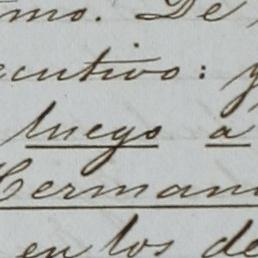 mo. De
ecutivo: y
luego a
Herman
en los de